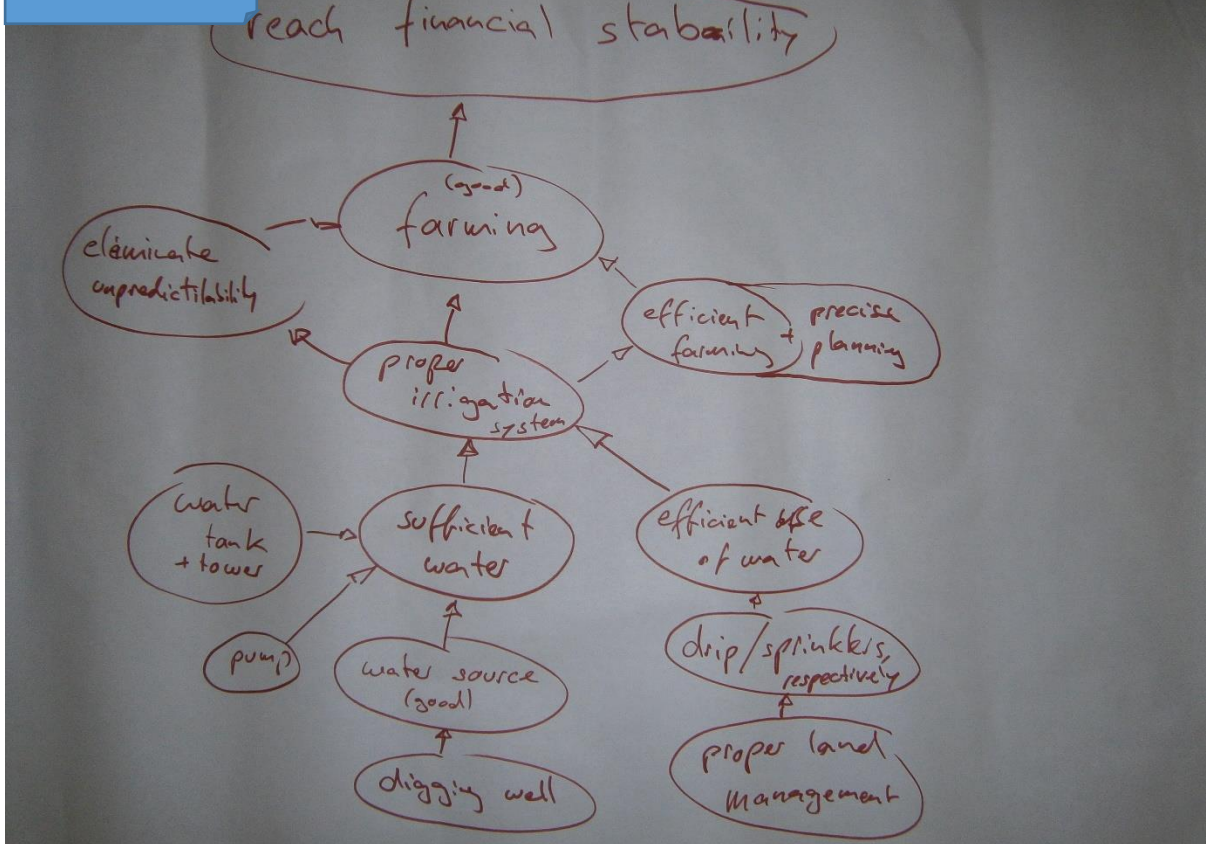 reach financial stability
(good)
farming
eliminate
unpredictilability
efficient
farming
+
precise
planning
proper
irrigation
system
water
tank
+ tower
sufficient
water
efficient use
of water
pump
water source
(good)
drip/sprinklers,
respectively
digging well
proper land
management